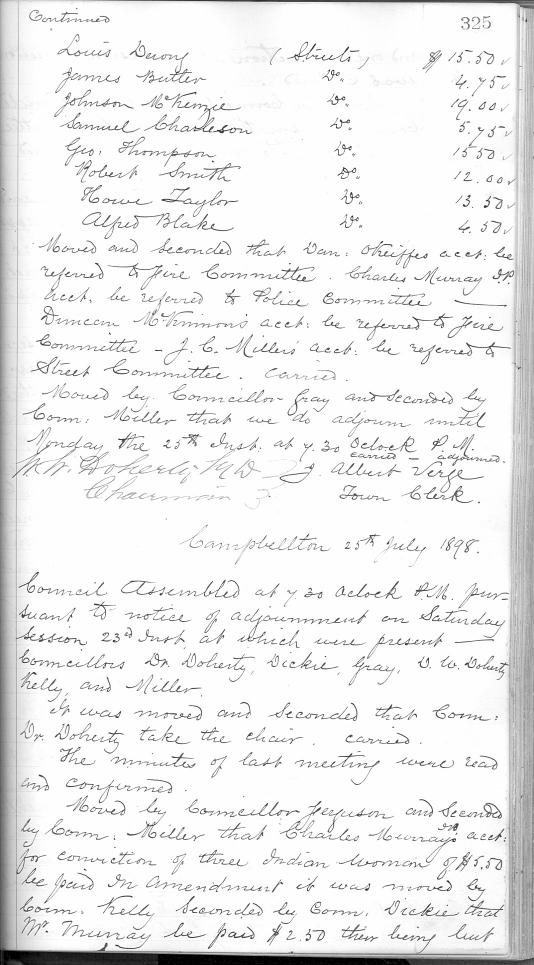 Continued 325
Louis Duory ( Streets $ 15.50
James Butler Do. 4.75
Johnson McKenzie Do. 19.00
Samuel Charleson Do. 5.75
Geo: Thompson Do. 15 50
Robert Smith Do. 12.00
Howe Taylor Do. 13.50
Alfred Blake Do. 4.50
Moved and Seconded that Dan: Okeiffes acct: be
referred to Fire Committee. Charles Murray J.P.
acct. be referred to Police Committee —
Duncan McKinnon's acct: be referred to Fire
Committee – J. C. Miller's acct: be referred to
Street Committee. carried.
Moved by Councillor Gray and Seconded by
Coun: Miller that we do adjourn until
Monday the 25th Inst. at 7.30 Oclock P.M.
carried – adjourned.
Doherty MD J. Albert Verge
Chairman Town Clerk.
Campbellton 25th July 1898.
Council Assembled at 7 30 Oclock P.M. pur-
suant to notice of adjournment on Saturday
Session 23rd Inst at which were present —
Councillors Dr. Doherty, Dickie, Gray, D. W. Doherty
Kelly, and Miller.
it was moved and Seconded that Coun:
Dr. Doherty take the chair. carried.
The minutes of last meeting were read
and confirmed.
Moved by Councillor Ferguson and Seconded
by Coun: Miller that Charles Murray's JP acct:
for conviction of three Indian Woman of $5.50
be paid In amendment it was moved by
Coun. Kelly Seconded by Coun. Dickie that
Mr. Murray be paid $2.50 ther being but